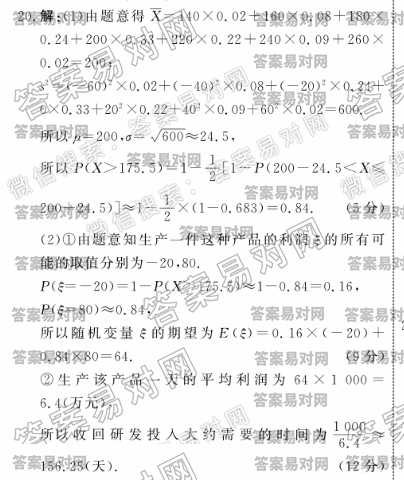 20.解:(1)由题意得 X̄=140×0.02+160×0.08+180×
0.24+200×0.33+220×0.22+240×0.09+260×
0.02=200;
s²=(−60)²×0.02+(−40)²×0.08+(−20)²×0.24+
0×0.33+20²×0.22+40²×0.09+60²×0.02=600,
所以μ=200,σ=√600≈24.5,
所以P(X>175.5)=1−1/2[1−P(200−24.5<X≤
200+24.5)]≈1−1/2×(1−0.683)=0.84. (5分)
(2)①由题意知生产一件这种产品的利润ξ的所有可
能的取值分别为−20,80.
P(ξ=−20)=1−P(X>175.5)≈1−0.84=0.16,
P(ξ=80)≈0.84,
所以随机变量ξ的期望为E(ξ)=0.16×(−20)+
0.84×80=64. (9分)
②生产该产品一天的平均利润为64×1 000=
6.4(万元),
所以收回研发投入大约需要的时间为1 000/6.4≈
156.25(天). (12分)